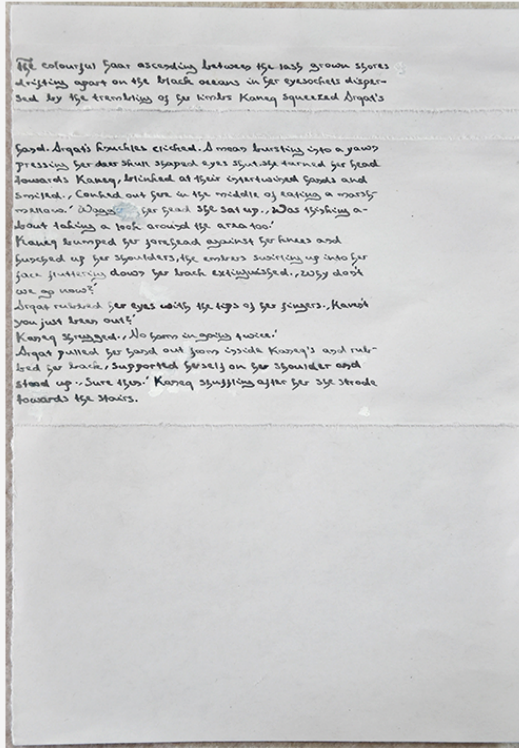 The colourful haar ascending between the lash grown shores
drifting apart on the black oceans in her eyesockets disper-
sed by the trembling of her limbs Kaneq squeezed Arqat's
hand. Arqat's knuckles clicked. A moan bursting into a yawn
pressing her deer skull shaped eyes shut she turned her head
towards Kaneq, blinked at their intertwined hands and
smiled. ‚Conked out here in the middle of eating a marsh-
mellow.' her head she sat up. ‚Was thinking a-
bout taking a look around the area too.'
Kaneq bumped her forehead against her knees and
hunched up her shoulders, the embers swirling up into her
face fluttering down her back extinguished. ‚Why don't
we go now?'
Arqat rubbed her eyes with the tips of her fingers. ‚Haven't
you just been out?'
Kaneq shrugged. ‚No harm in going twice.'
Arqat pulled her hand out from inside Kaneq's and rub-
bed her back, supported herself on her shoulder and
stood up. ‚Sure then.' Kaneq shuffling after her she strode
towards the stairs.